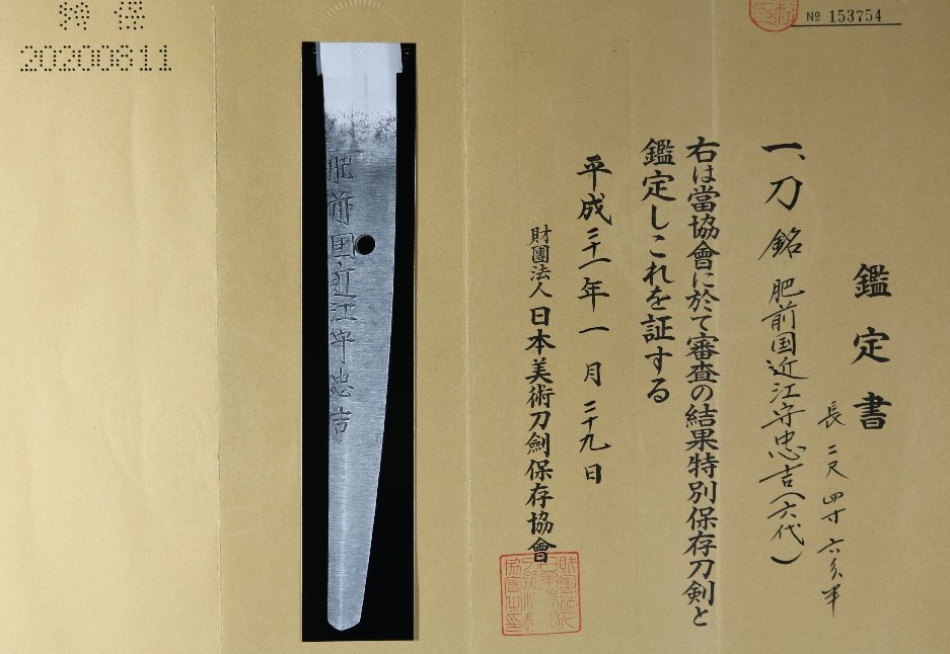 特保
20200811
№ 153754
鑑定書
長 二尺四寸六分半
一、刀 銘 肥前国近江守忠吉(六代)
右は當協會に於て審査の結果特別保存刀劍と
鑑定しこれを証する
平成二十一年一月二十九日
財團法人 日本美術刀劍保存協會
肥前国近江守忠吉